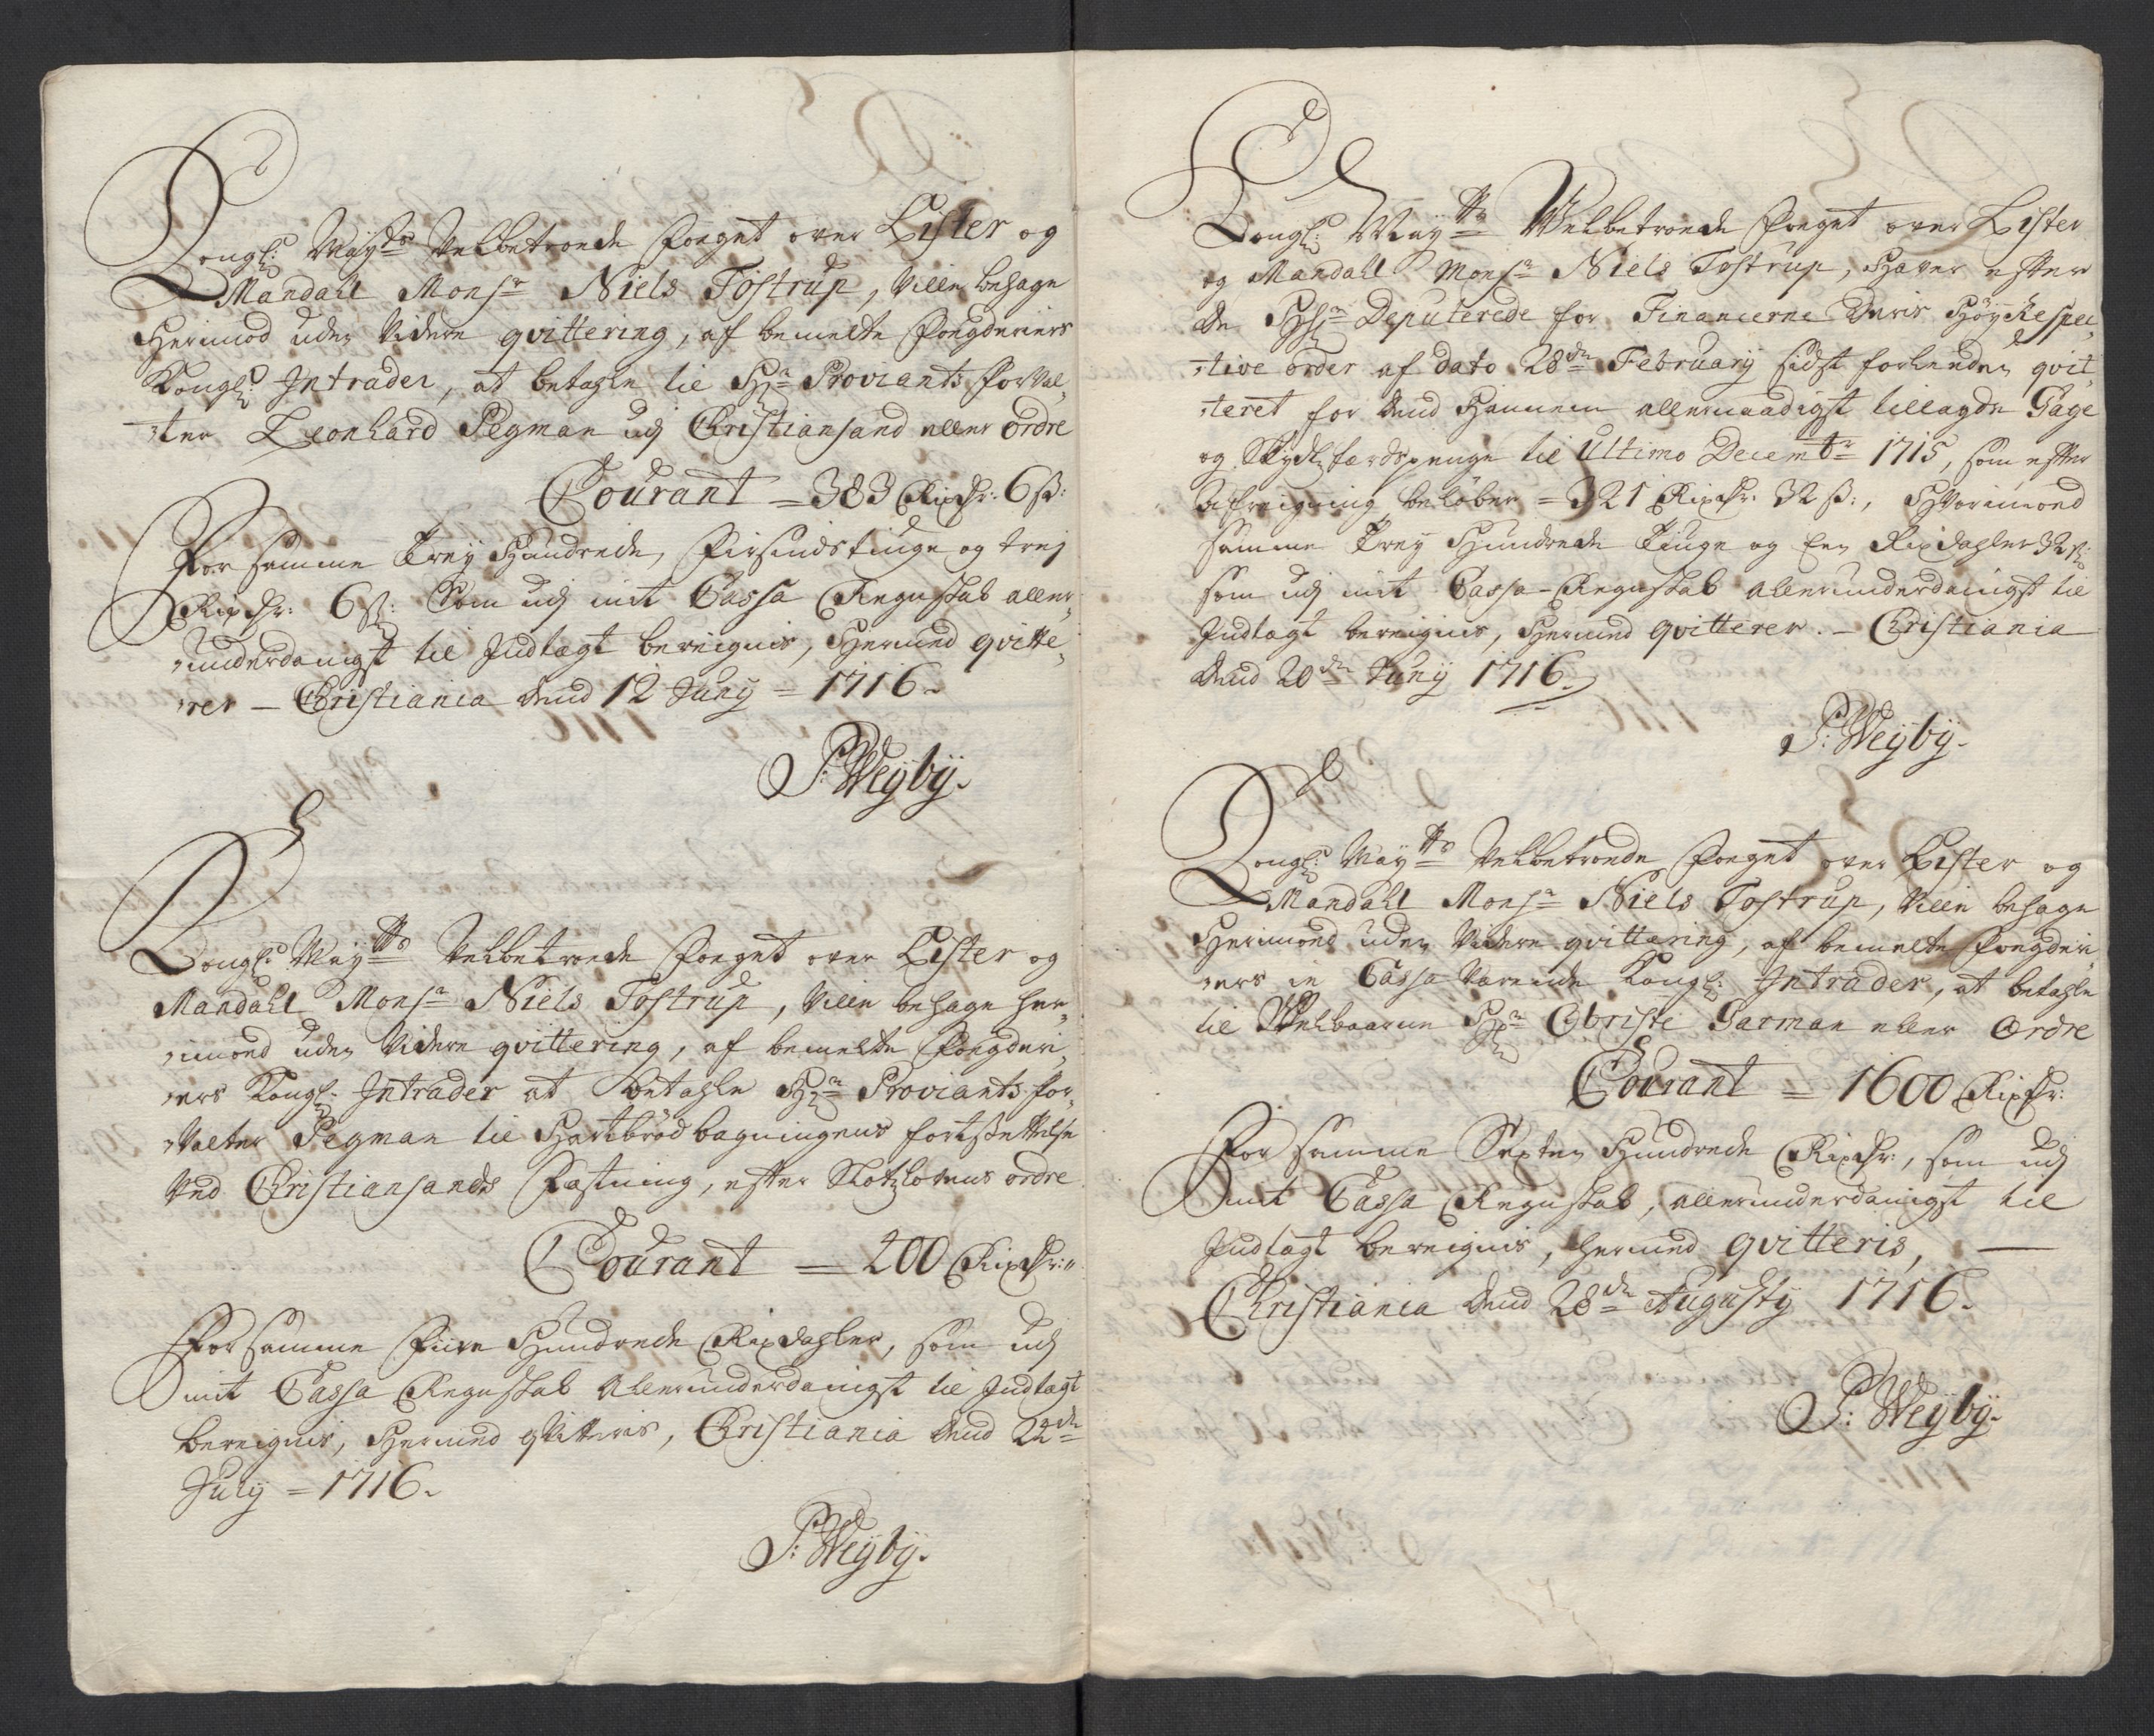 Kongl: Mayts Velbetroede Foeget over Lister og
Mandahl Monsr Niels Tostrup, Ville behage
Herimod uden Videre qvittering, af bemelte Foegderiers
Kongl: Intrader, at betahle til Hr Proviants forval-
ter Leonhard Pegman udj Christiansand eller ordre
Courant = 383 Rixdr: 6 ß:
For samme Trey Hundrede, Firsindstiuge og trej
Rixdr: 6 ß: Som udj mit Cassa Regnskab aller-
underdanigst til Indtægt bereignis, Hermed qvitte-
rer – Christiania dend 12 Juny = 1716.
P: Weyby.
Kongl: Maytts Velbetroede Foeget over Lister og
Mandahl Monsr Niels Tostrup, Ville behage her-
imoed uden Videre qvittering, af bemelte Foegderi-
ers Kongl: Intrader at betahle Hr Proviants for-
valter Pegman til Hartbrød bagningens fortsettelse
ved Christiansands Fæstning, efter Slotzlovens ordre
Courant = 400 Rixdr:
For samme Fiire Hundrede Rixdahler, som udj
mit Cassa Regnskab Allerunderdanigst til Indtægt
bereignis, Hermed qvitteris, Christiania dend 24de
July = 1716.
P: Weyby.
Kongl: Maytts Welbetroede Foeget over Lister
og Mandahl Monsr Niels Tostrup, Haver efter
de Hhr Deputerede for Financerne Deris Høy Respec-
tive order af dato 28de February sidst forleeden qvit-
teret for dend Hannem allernaadigst tillagde Gage
og Skydtzfærdspenge til Ultimo Decembr 1715, som efter
Afreigning beløber = 321 Rixdr: 32 ß:, Hvorimoed
samme Trey Hundrede Tiuge og Een Rixdahler 32 ß:
som udj mit Cassa-Regnskab allerunderdanigst til
Indtægt bereignes, Hermed qvitterer. – Christiania
dend 20de Juny 1716.
P: Weyby.
Kongl: Maytts Velbetroede Foeget over Lister og
Mandahl Monsr Niels Tostrup, Ville behage
Herimoed uden Videre qvittering, af bemelte Foegderi-
ers in Cassa værende Kongl: Intrader, at betahle
til Welbaarne Hr Obriste Garman eller Ordre
Courant = 1600 Rixdr:
For samme Sexten Hundrede Rixdr:, som udj
mit Cassa Regnskab, allerunderdanigst til
Indtægt bereignis, hermed qvitteris, –
Christiania dend 28de Augusty 1716.
P: Weyby.